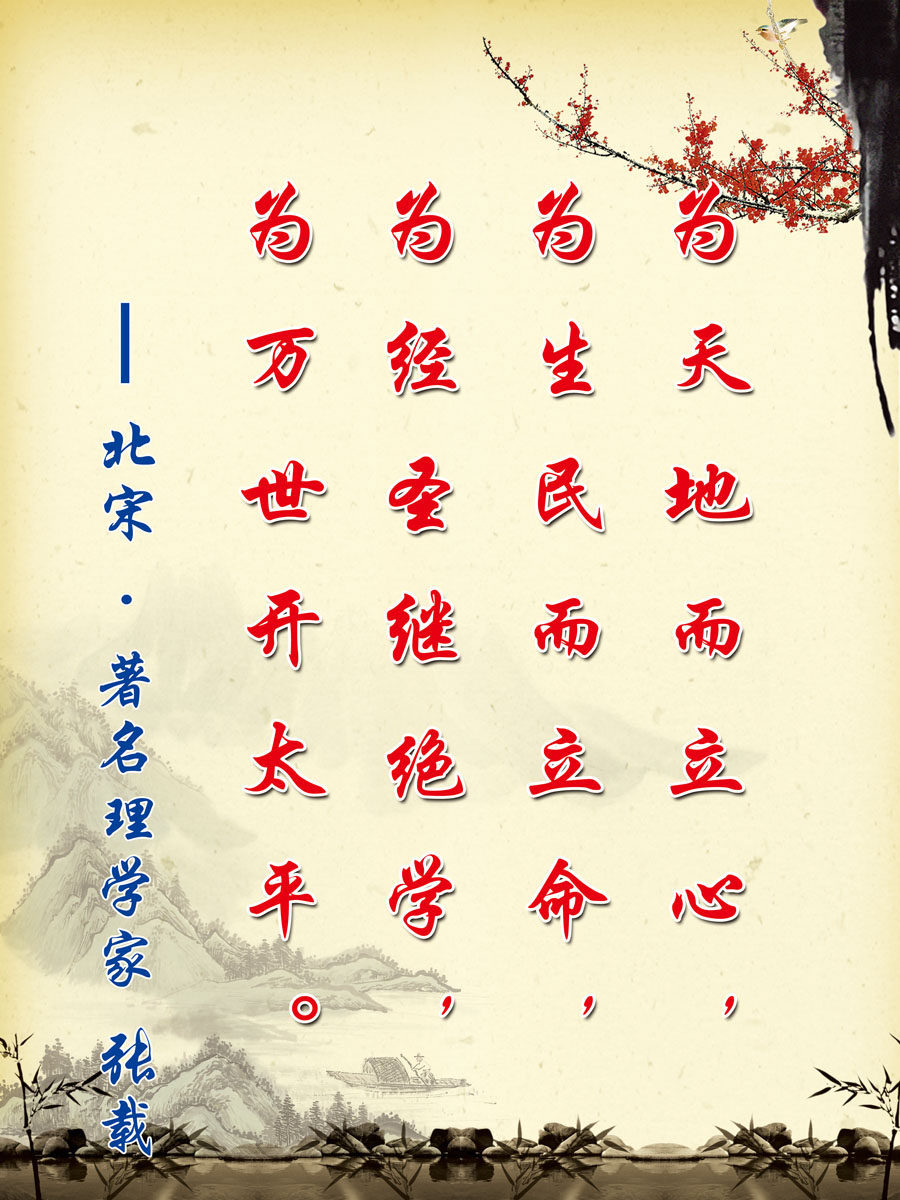 为天地而立心，
为生民而立命，
为经圣继绝学，
为万世开太平。
—北宋·著名理学家 张载